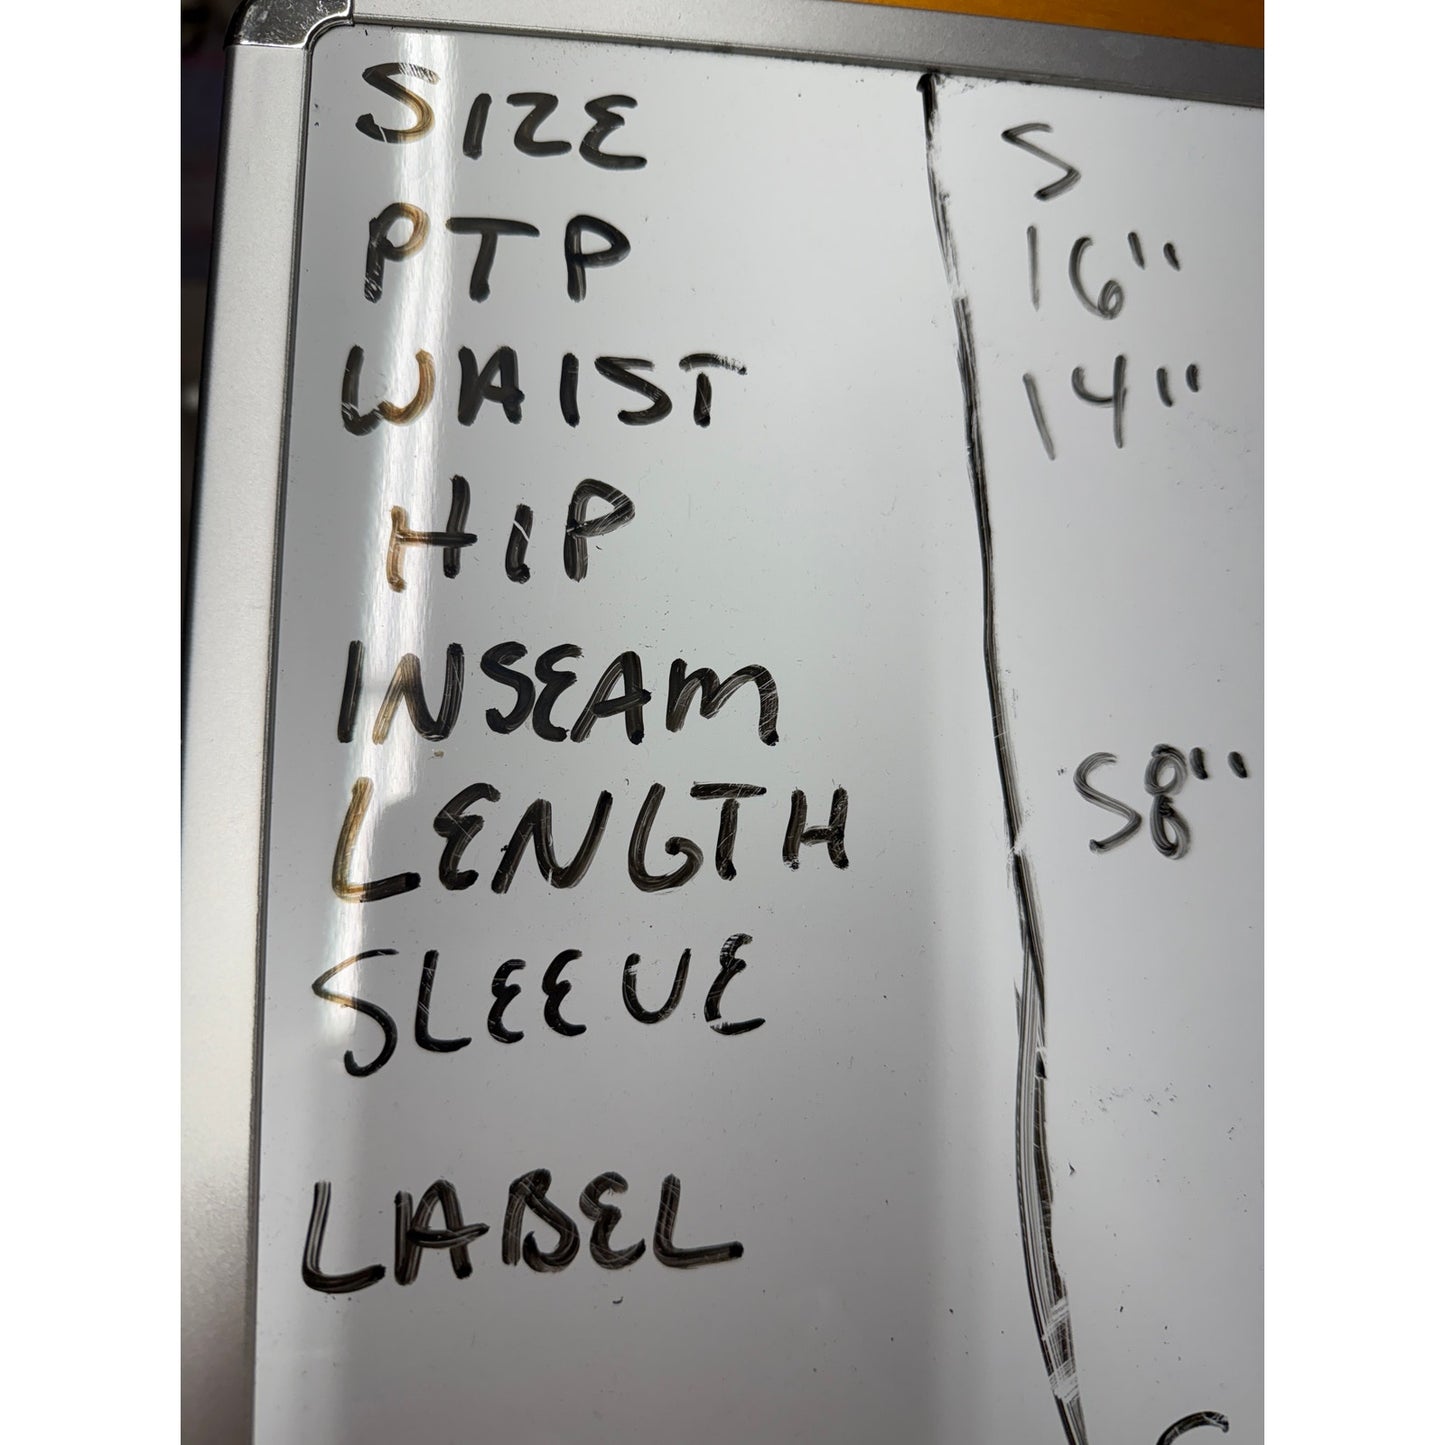 SIZE S
PTP 16"
WAIST 14"
HIP
INSEAM
LENGTH 58"
SLEEVE
LABEL